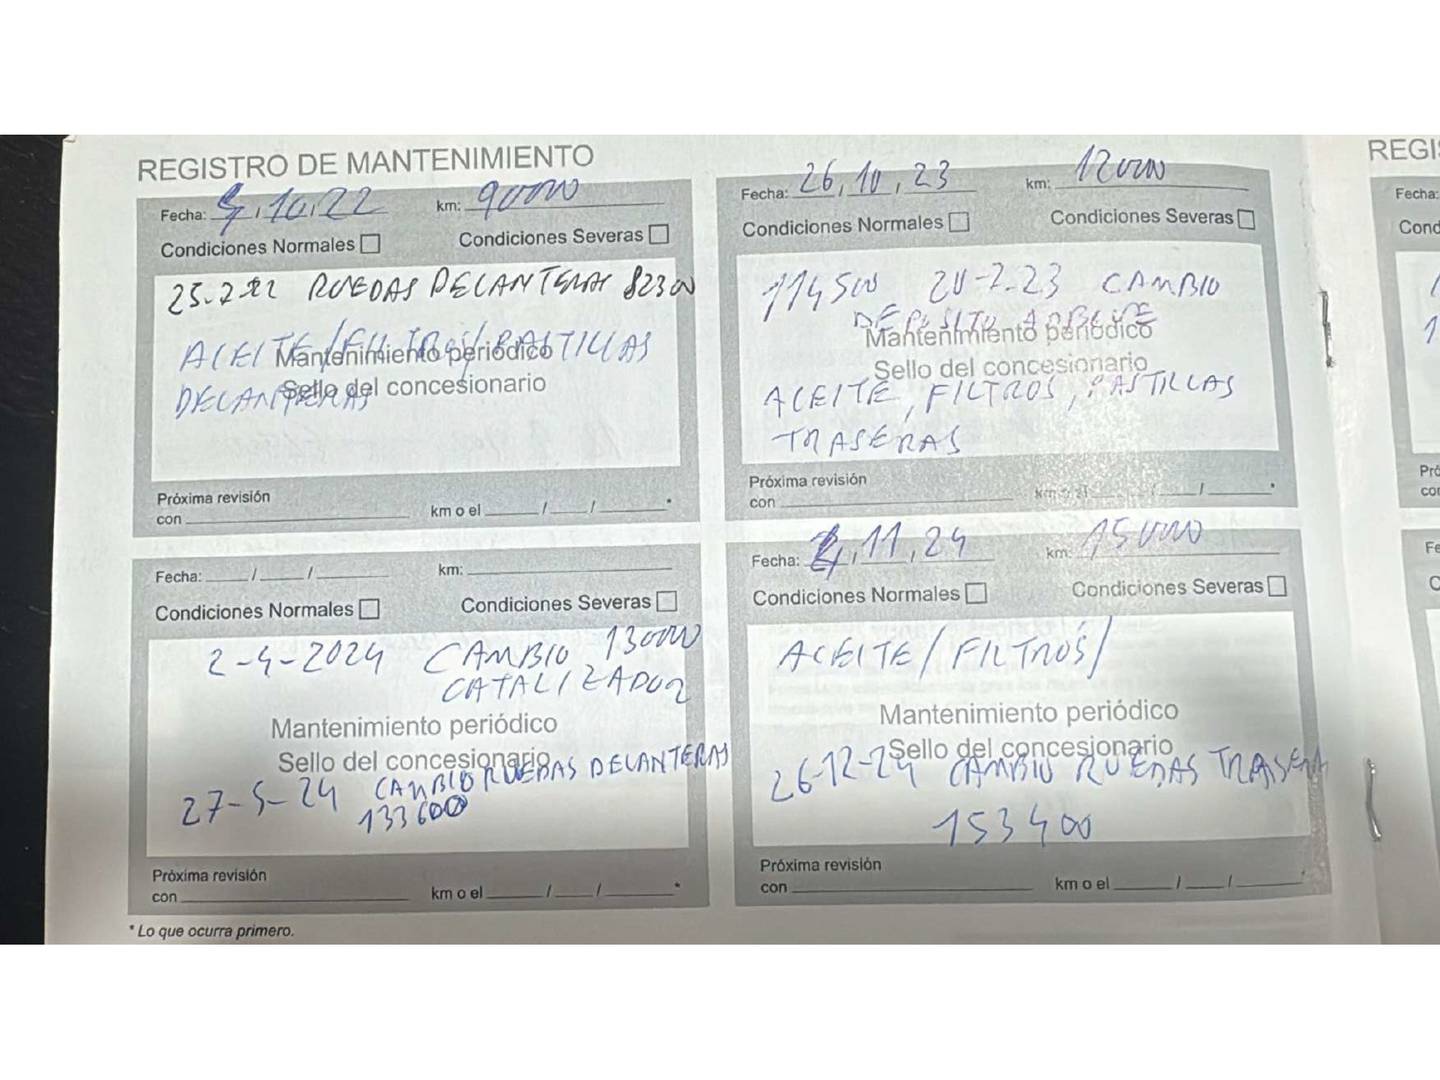 REGISTRO DE MANTENIMIENTO
Fecha: 10, 22 km: 90000
Condiciones Normales Condiciones Severas
25-2-22 RUEDAS DELANTERAS 82300
ACEITE/FILTROS/PASTILLAS
Mantenimiento periódico
DELANTERAS
Sello del concesionario
Próxima revisión
con km o el / / *
Fecha: 26, 10, 23 km: 120000
Condiciones Normales Condiciones Severas
114500 20-2-23 CAMBIO
DEPOSITO ADBLUE
Mantenimiento periódico
Sello del concesionario
ACEITE, FILTROS, PASTILLAS
TRASERAS
Próxima revisión
con km o el / / *
Fecha: / / km:
Condiciones Normales Condiciones Severas
2-4-2024 CAMBIO 130000
CATALIZADOR
Mantenimiento periódico
Sello del concesionario
27-5-24 CAMBIO RUEDAS DELANTERAS
133600
Próxima revisión
con km o el / / *
Fecha: 11, 24 km: 150000
Condiciones Normales Condiciones Severas
ACEITE/FILTROS/
Mantenimiento periódico
Sello del concesionario
26-12-24 CAMBIO RUEDAS TRASERA
153400
Próxima revisión
con km o el / / *
* Lo que ocurra primero.
REGIS
Fecha:
Cond
Pró
con
Fe
C